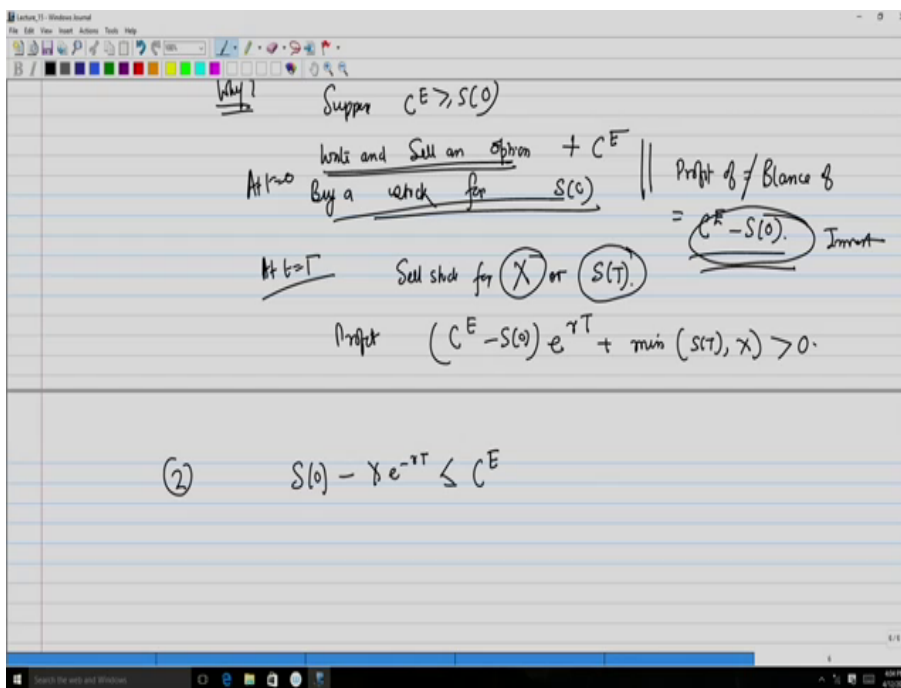 Lecture_15 - Windows Journal
File Edit View Insert Actions Tools Help
B I
Why?
Suppose C^E ≥ S(0)
Write and Sell an option + C^E
At t=0
Buy a stock for S(0)
Profit of / Blance of
= C^E - S(0). Invest
At t=T
Sell stock for X or S(T).
Profit (C^E - S(0)) e^{rT} + min (S(T), X) > 0.
② S(0) - X e^{-rT} ≤ C^E
Search the web and Windows